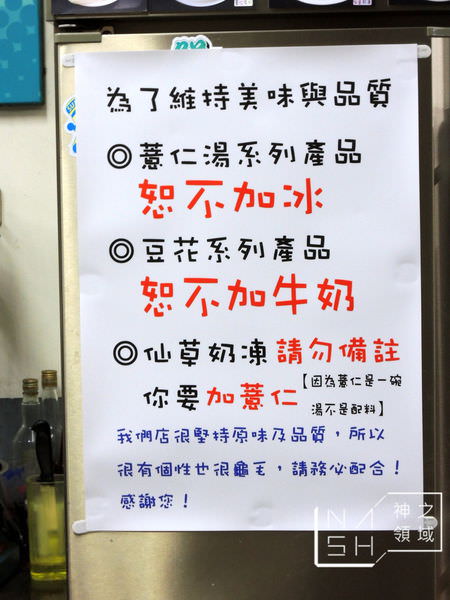 為了維持美味與品質
◎薏仁湯系列產品
恕不加冰
◎豆花系列產品
恕不加牛奶
◎仙草奶凍請勿備註
你要加薏仁【因為薏仁是一碗
湯不是配料】
我們店很堅持原味及品質，所以
很有個性也很龜毛，請務必配合！
感謝您！
NASH 神之領域